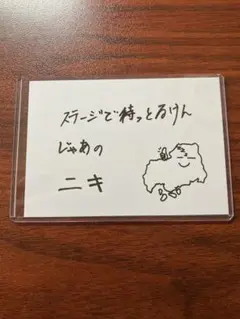 ステージで待っとるけん
じゃあの
ニキ